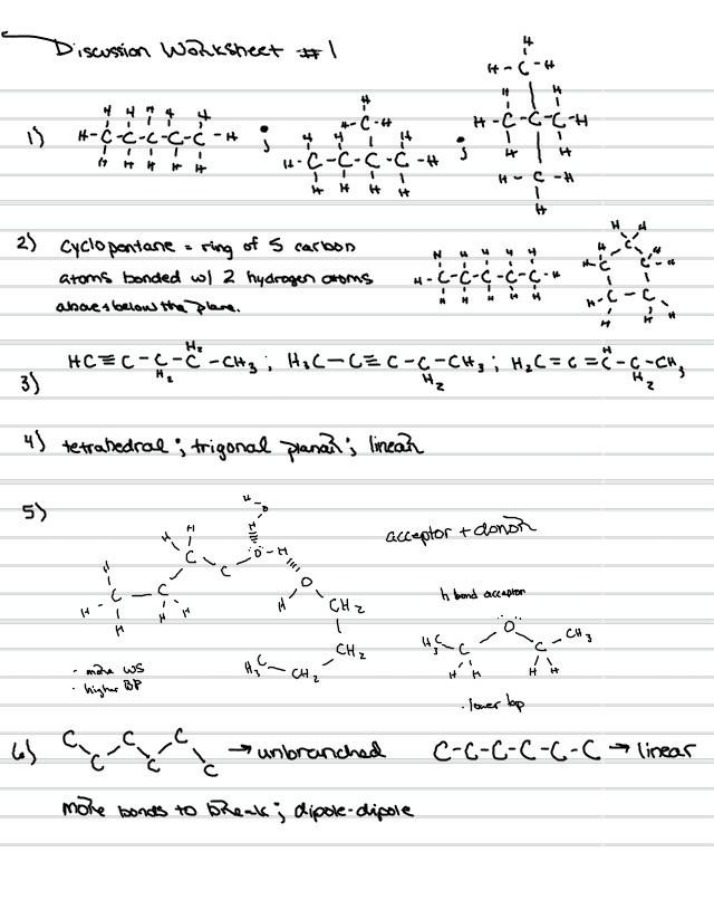 Discussion Worksheet #1
1) H-C-C-C-C-C-H ; H-C-C-C-C-H ; H-C-C-C-H
2) Cyclopentane = ring of 5 carbon
atoms bonded w/ 2 hydrogen atoms
above & below the plane.
3) HC≡C-C-C-CH3 ; H3C-C≡C-C-CH3 ; H2C=C=C-C-CH3
H2 H2 H2 H H2
4) tetrahedral ; trigonal planar ; linear
5)
acceptor + donor
h bond acceptor
H O H
CH2
CH2
H3C CH2
H3C C O C CH3
· more WS
· higher BP
· lower bp
6) C C C C C C → unbranched C-C-C-C-C-C → linear
more bonds to break ; dipole-dipole